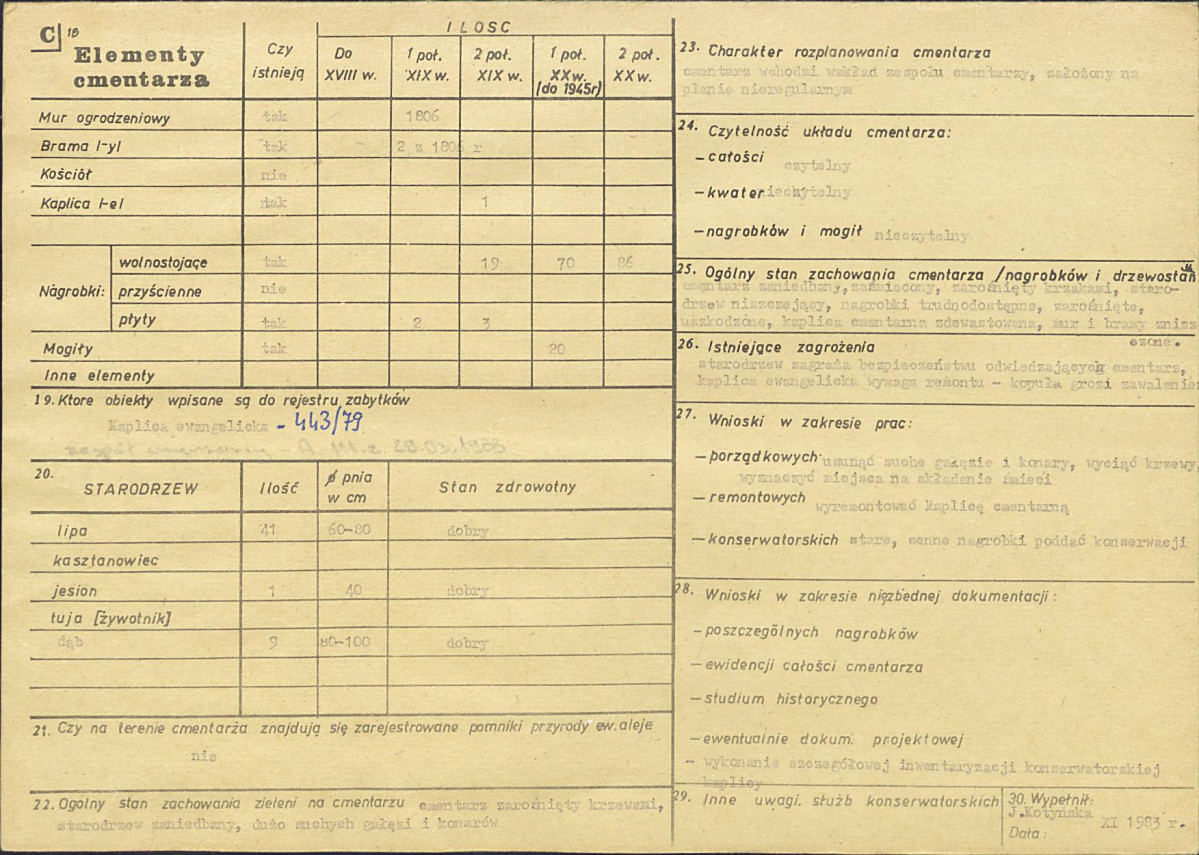 C 18
Elementy cmentarza
Czy istnieją
ILOSC
Do XVIII w.
1 poł. XIX w.
2 poł. XIX w.
1 poł. XX w. (do 1945r)
2 poł. XX w.
Mur ogrodzeniowy tak 1806
Brama I-yl tak 2 z 1806 r
Kościół nie
Kaplica I-el tak 1
Nagrobki:
wolnostojące tak 19 70 86
przyścienne nie
płyty tak 2 3
Mogiły tak 20
Inne elementy
19. Ktore obiekty wpisane są do rejestru zabytków
Kaplica ewangelicka - 443/79
zespół cmentarny - A 28.03.1988
20. STARODRZEW Ilość ø pnia w cm Stan zdrowotny
lipa 41 60-80 dobry
kasztanowiec
jesion 1 40 dobry
tuja [żywotnik]
dąb 9 80-100 dobry
21. Czy na terenie cmentarza znajdują się zarejestrowane pomniki przyrody ew. aleje
nie
22. Ogólny stan zachowania zieleni na cmentarzu cmentarz zarośnięty krzewami,
starodrzew zaniedbany, dużo suchych gałęzi i konarów
23. Charakter rozplanowania cmentarza
cmentarz wchodzi wskład zespołu cmentarzy, założony na
planie nieregularnym
24. Czytelność układu cmentarza:
- całości czytelny
- kwater nieczytelny
- nagrobków i mogił nieczytelny
25. Ogólny stan zachowania cmentarza /nagrobków i drzewostan
cmentarz zaniedbany, zaśmiecony, zarośnięty krzakami, staro-
drzew niszczejący, nagrobki trudnodostępne, zarośnięte,
uszkodzone, kaplica cmentarna zdewastowana, mur i bramy znisz
czone.
26. Istniejące zagrożenia
starodrzew zagraża bezpieczeństwu odwiedzających cmentarz,
kaplica ewangelicka wymaga remontu - kopuła grozi zawalenie
27. Wnioski w zakresie prac:
- porządkowych usunąć suche gałęzie i konary, wyciąć krzewy,
wyznaczyć miejsca na składanie śmieci
- remontowych wyremontować kaplicę cmentarną
- konserwatorskich stare, cenne nagrobki poddać konserwacji
28. Wnioski w zakresie niezbednej dokumentacji:
- poszczególnych nagrobków
- ewidencji całości cmentarza
- studium historycznego
- ewentualnie dokum. projektowej
- wykonanie szczegółowej inwentaryzacji konserwatorskiej
kaplicy
29. Inne uwagi. służb konserwatorskich
30. Wypełnił:
J.Kotyńska
Data: XI 1983 r.